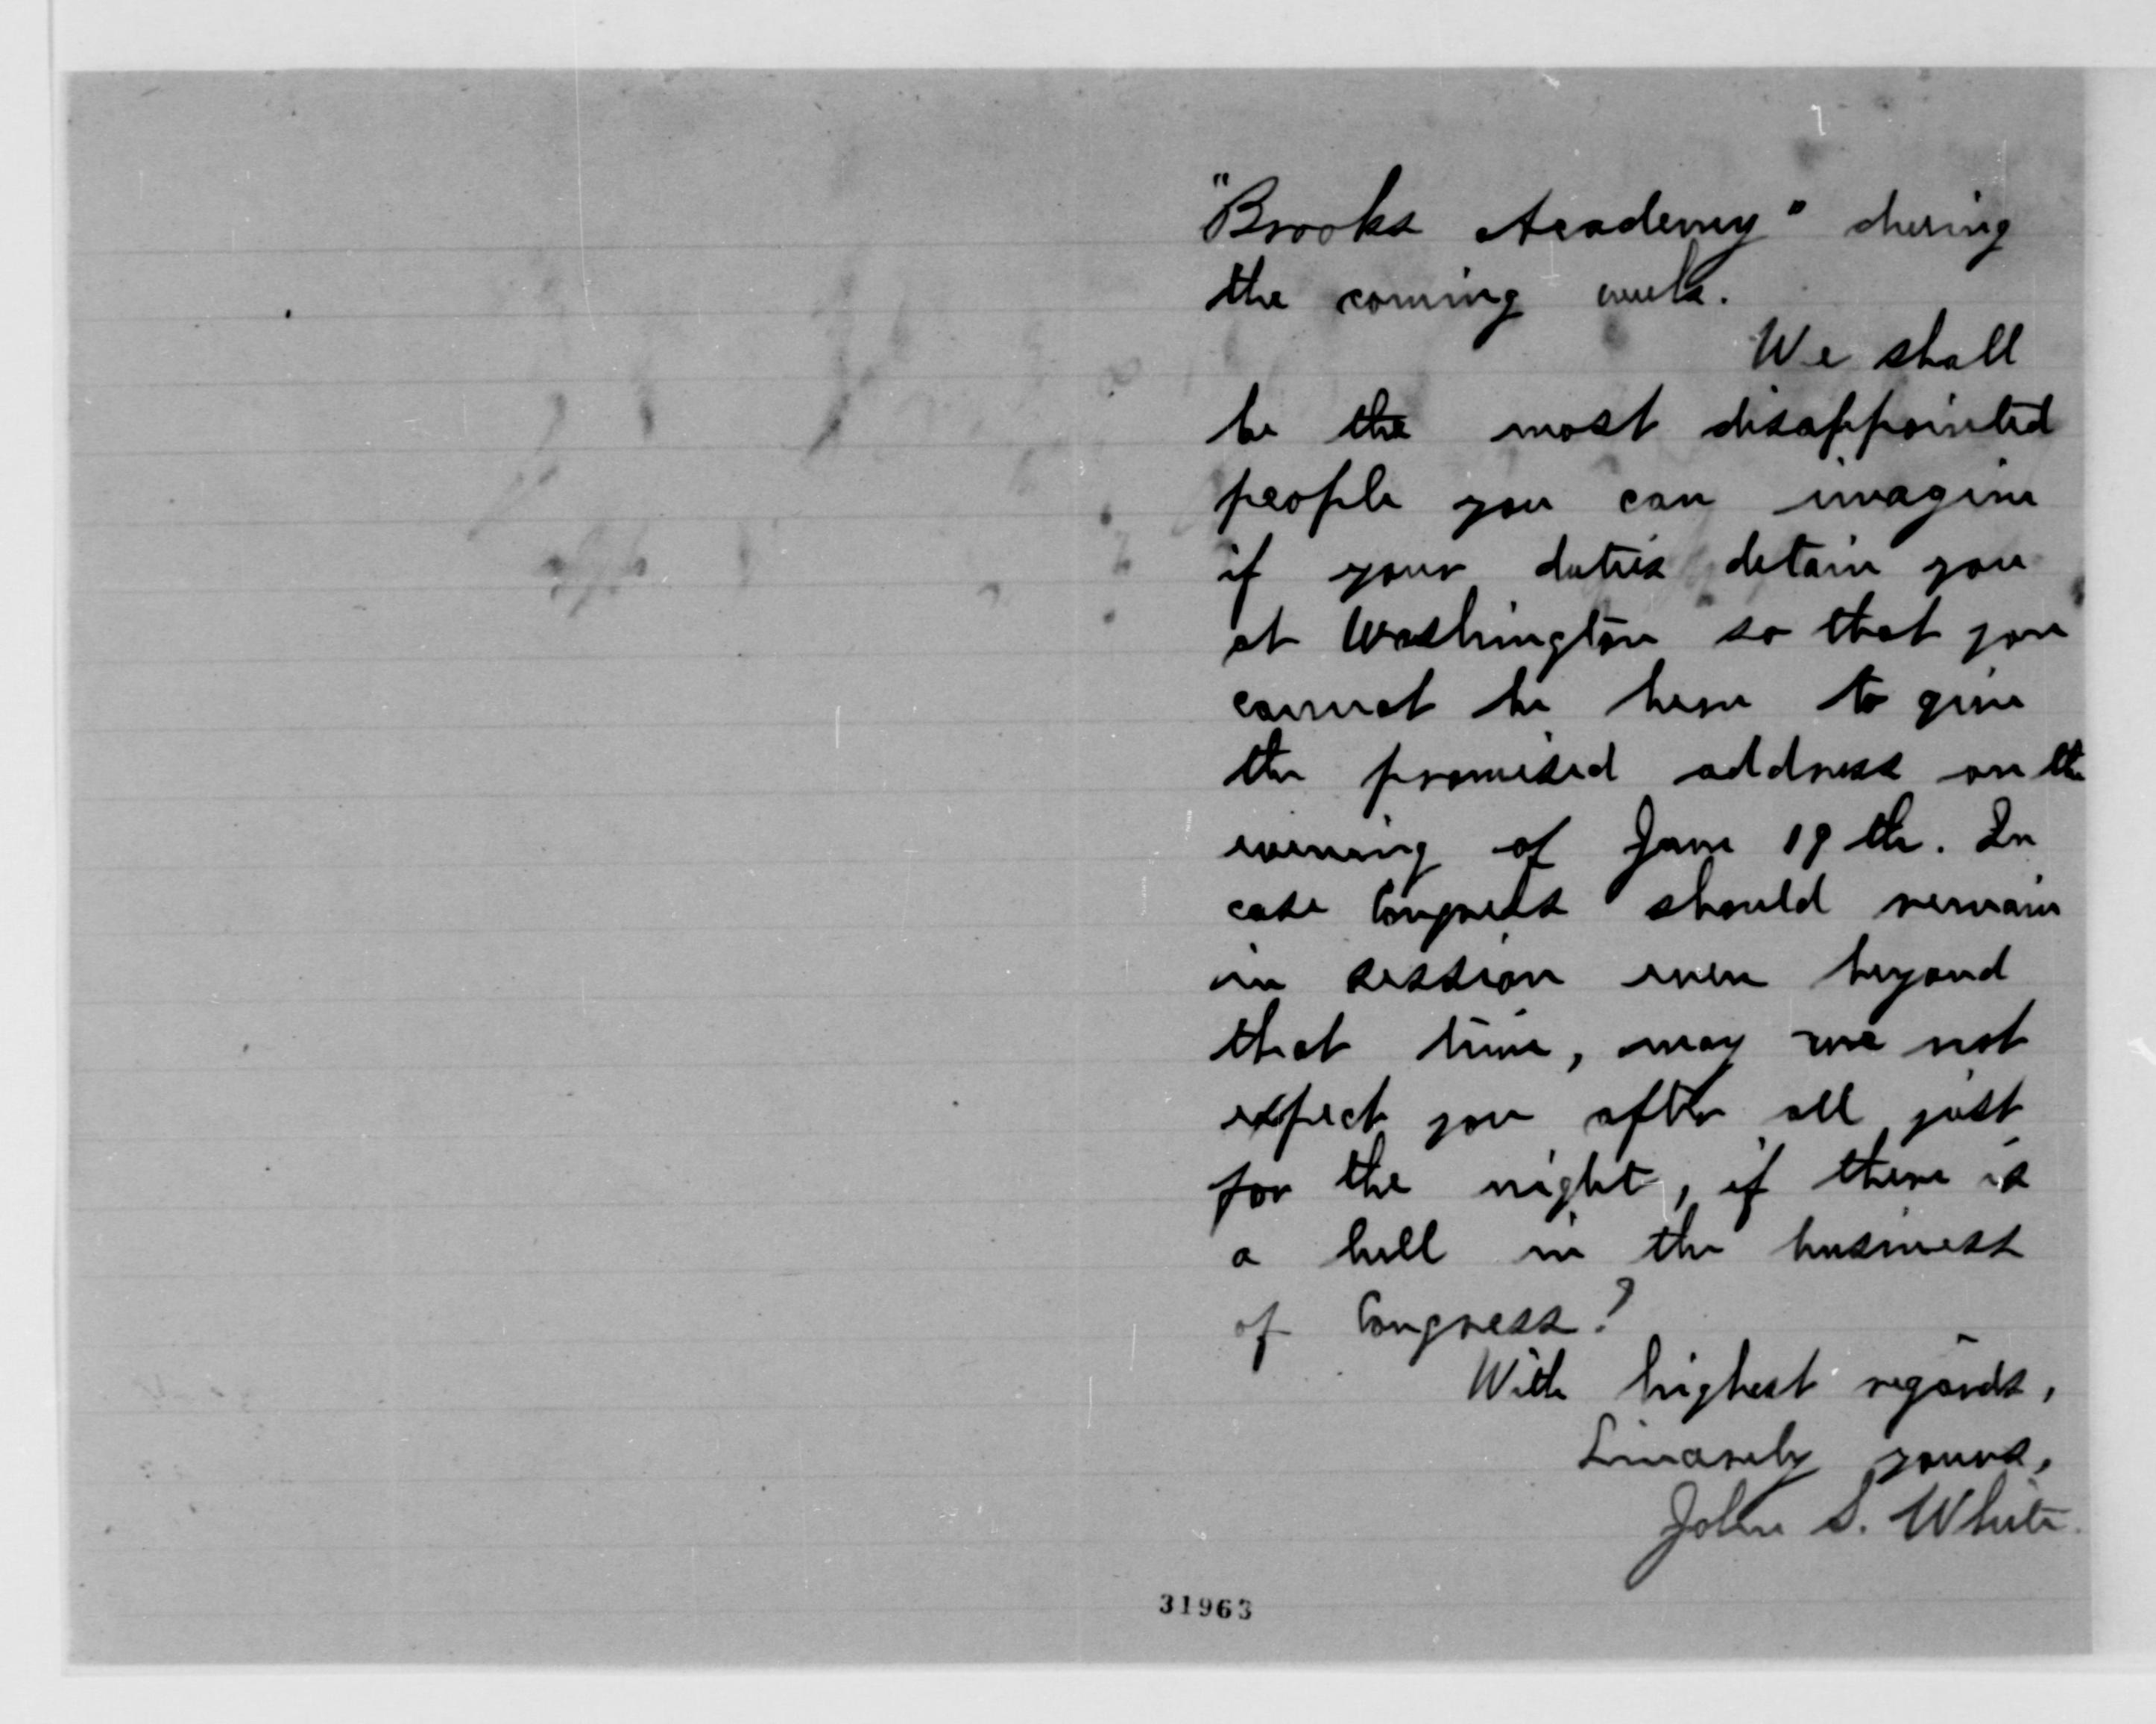 "Brooks Academy" during
the coming week.
We shall
be the most disappointed
people you can imagine
if your duties detain you
at Washington so that you
cannot be here to give
the promised address on the
evening of June 19th. In
case Congress should remain
in session even beyond
that time, may we not
expect you after all just
for the night, if there is
a lull in the business
of Congress?
With highest regards,
Sincerely yours,
John S. White.
31963